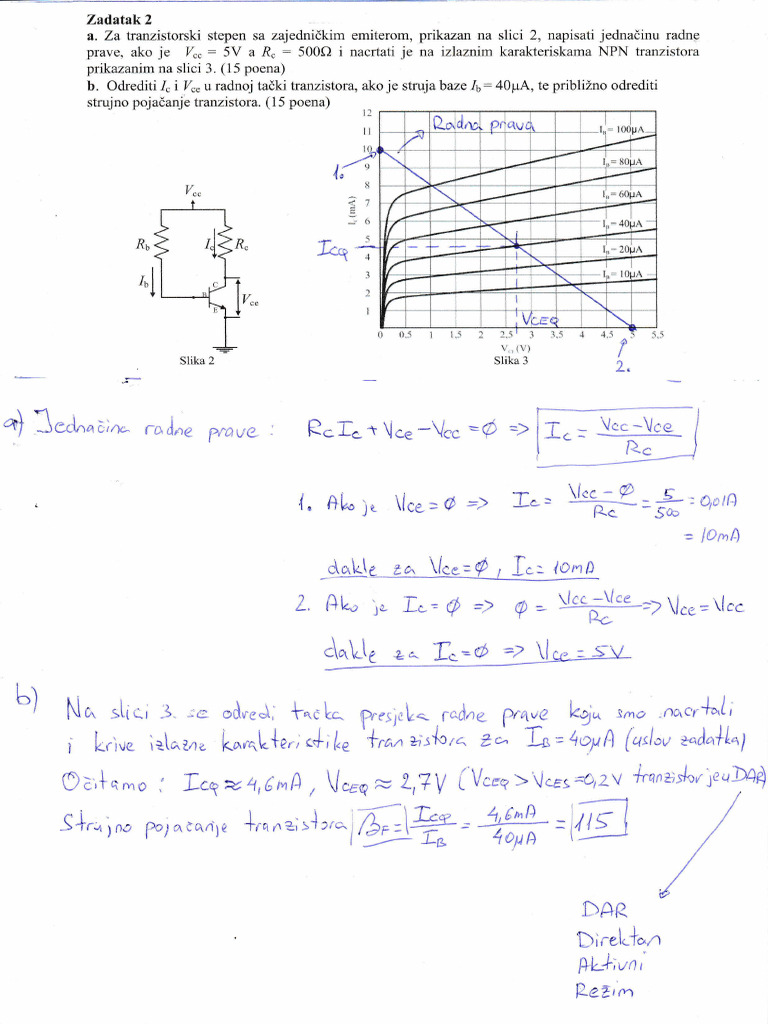 Zadatak 2
a. Za tranzistorski stepen sa zajedničkim emiterom, prikazan na slici 2, napisati jednačinu radne
prave, ako je Vcc = 5V a Rc = 500Ω i nacrtati je na izlaznim karakteriskama NPN tranzistora
prikazanim na slici 3. (15 poena)
b. Odrediti Ic i Vce u radnoj tački tranzistora, ako je struja baze Ib = 40μA, te približno odrediti
strujno pojačanje tranzistora. (15 poena)
Vcc
Rb
Ic
Rc
Ib
C
B
E
Vce
Slika 2
12
11
10
9
8
7
6
5
4
3
2
1
Ic (mA)
Radna prava
1.
ICQ
IB = 100μA
IB = 80μA
IB = 60μA
IB = 40μA
IB = 20μA
IB = 10μA
VCEQ
0 0,5 1 1,5 2 2,5 3 3,5 4 4,5 5 5,5
VCE (V)
Slika 3
2.
a) Jednačina radne prave : RcIc + Vce – Vcc = ∅ => Ic = Vcc – Vce / Rc
1. Ako je Vce = ∅ => Ic = Vcc – ∅ / Rc = 5 / 500 = 0,01A
= 10mA
dakle za Vce = ∅ , Ic = 10mA
2. Ako je Ic = ∅ => ∅ = Vcc – Vce / Rc => Vce = Vcc
dakle za Ic = ∅ => Vce = 5V
b) Na slici 3. se odredi tačka presjeka radne prave koju smo nacrtali
i krive izlazne karakteristike tranzistora za IB = 40μA (uslov zadatka)
Očitamo : ICQ ≈ 4,6mA , VCEQ ≈ 2,7V (VCEQ > VCES = 0,2V tranzistor je u DAR)
Strujno pojačanje tranzistora βF = ICQ / IB = 4,6mA / 40μA = 115
DAR
Direktan
Aktivni
Režim